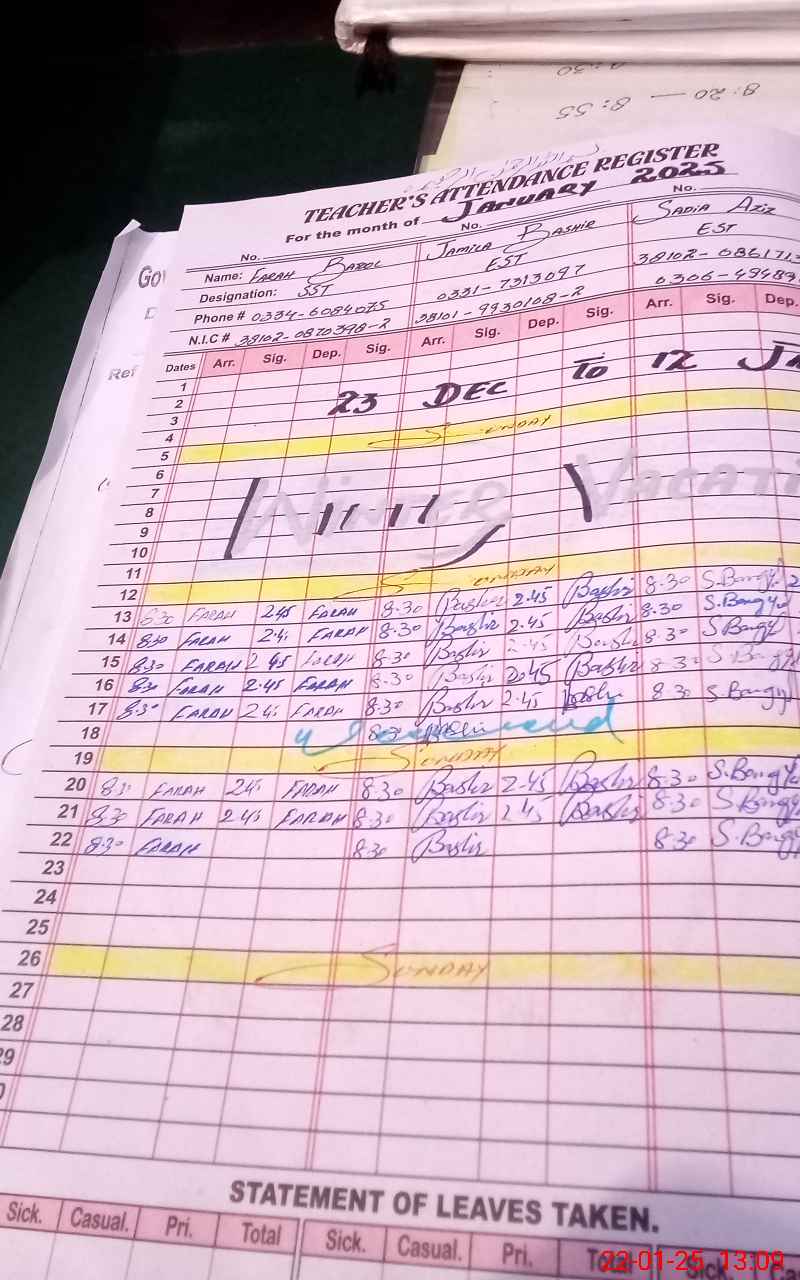 8:20 — 8:55
TEACHER'S ATTENDANCE REGISTER
For the month of JANUARY 2025
No. No. No.
Name: FARAH BATOOL JAMILA BASHIR SADIA AZIZ
Designation: SST EST EST
Phone # 0334-6084075 0331-7313097 38102-0861713
N.I.C # 38102-0870398-2 38101-9930108-2 0306-49489
Dates Arr. Sig. Dep. Sig. Arr. Sig. Dep. Sig. Arr. Sig. Dep.
1
2 23 DEC To 12 JA
3
4
5 SUNDAY
6
7
8 WINTER VACATI
9
10
11
12 SUNDAY
13 8:30 FARAH 2.45 FARAH 8.30 Bashir 2.45 Bashir 8.30 S.Bangyal
14 8:30 FARAH 2.45 FARAH 8.30 Bashir 2.45 Bashir 8.30 S.Bangyal
15 8:30 FARAH 2.45 FARAH 8.30 Bashir 2.45 Bashir 8.30 S.Bangyal
16 8:30 FARAH 2.45 FARAH 8.30 Bashir 2.45 Bashir 8.30 S.Bangyal
17 8:30 FARAH 2.45 FARAH 8.30 Bashir 2.45 Bashir 8.30 S.Bangyal
18 8:30 Bashir weekend
19 SUNDAY
20 8:30 FARAH 2.45 FARAH 8.30 Bashir 2.45 Bashir 8.30 S.Bangyal
21 8:30 FARAH 2.45 FARAH 8.30 Bashir 2.45 Bashir 8.30 S.Bangyal
22 8:30 FARAH 8.30 Bashir 8.30 S.Bangyal
23
24
25
26 SUNDAY
27
28
29
STATEMENT OF LEAVES TAKEN.
Sick. Casual. Pri. Total Sick. Casual. Pri. Total Sick Ca
22-01-25 13:09